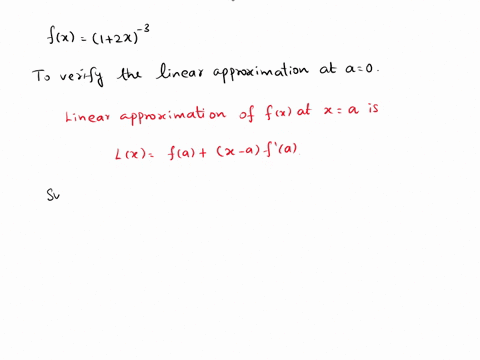 f(x) = (1+2x)^{-3}
To verify the linear approximation at a=0.
Linear approximation of f(x) at x=a is
L(x) = f(a) + (x-a) f'(a)
Su